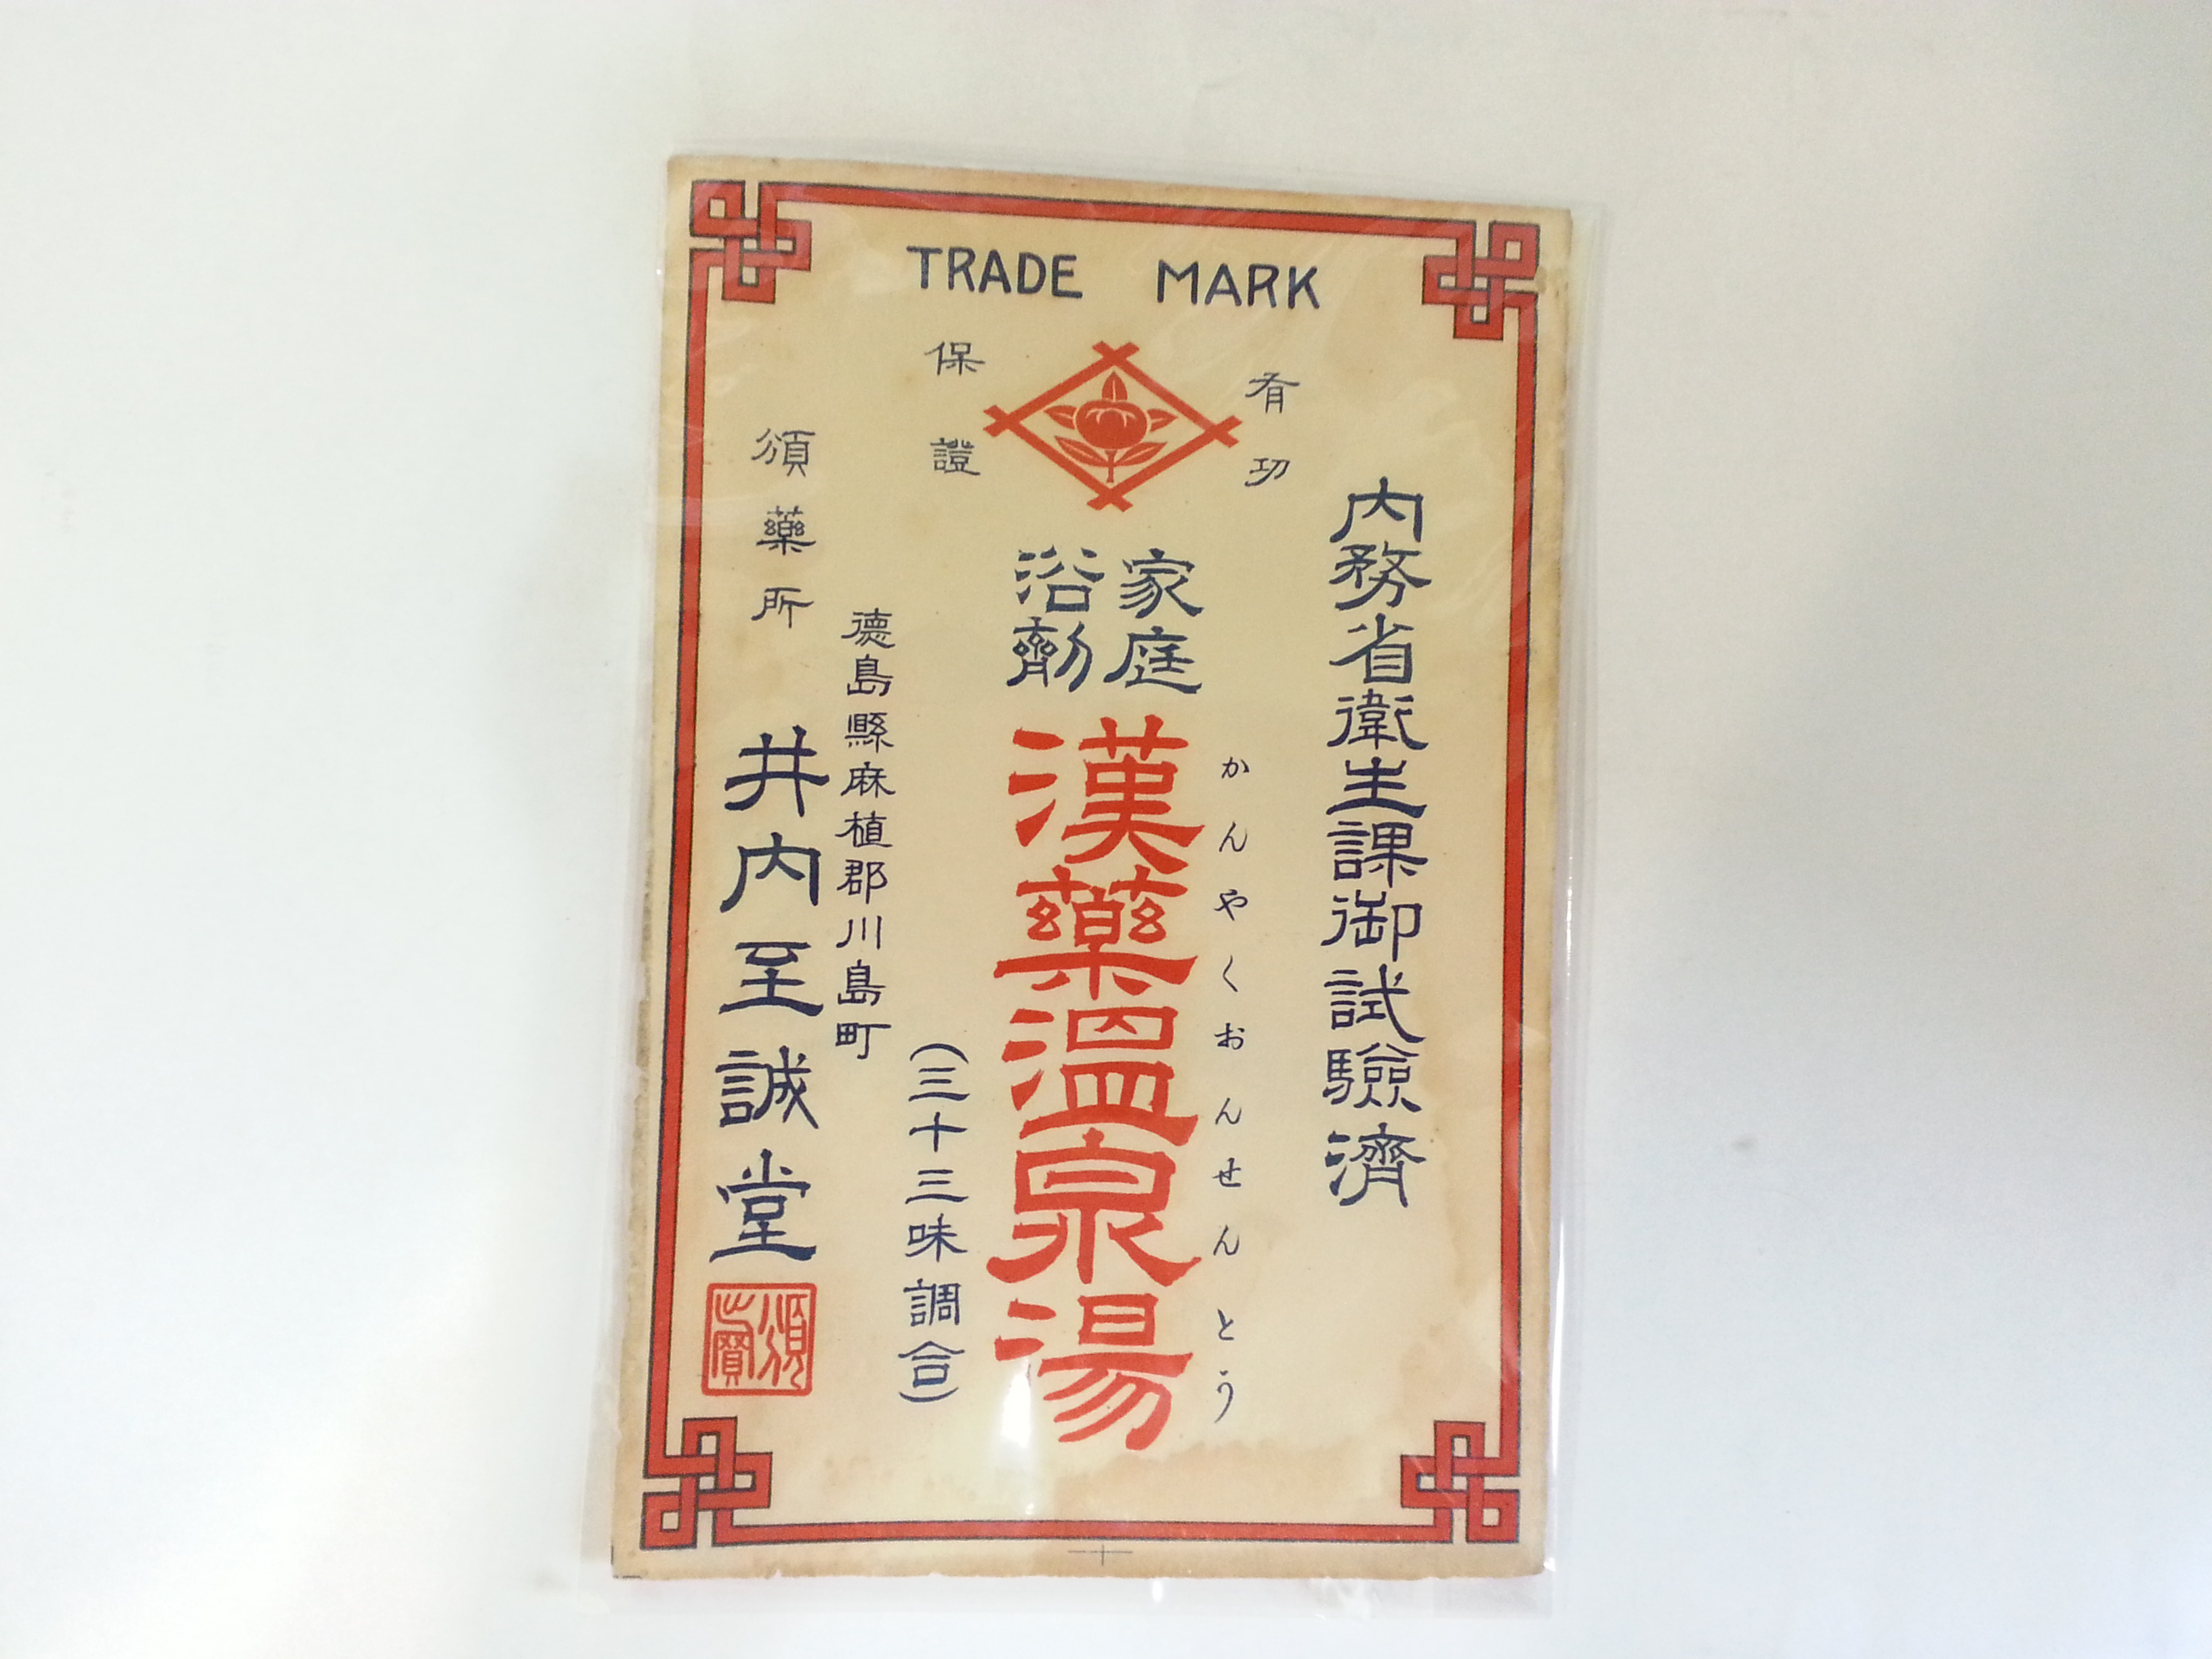 TRADE MARK
有功
保證
内務省衛生課御試驗濟
家庭
浴劑
漢藥溫泉湯
かんやくおんせんとう
(三十三味調合)
德島縣麻植郡川島町
頒藥所
井内至誠堂